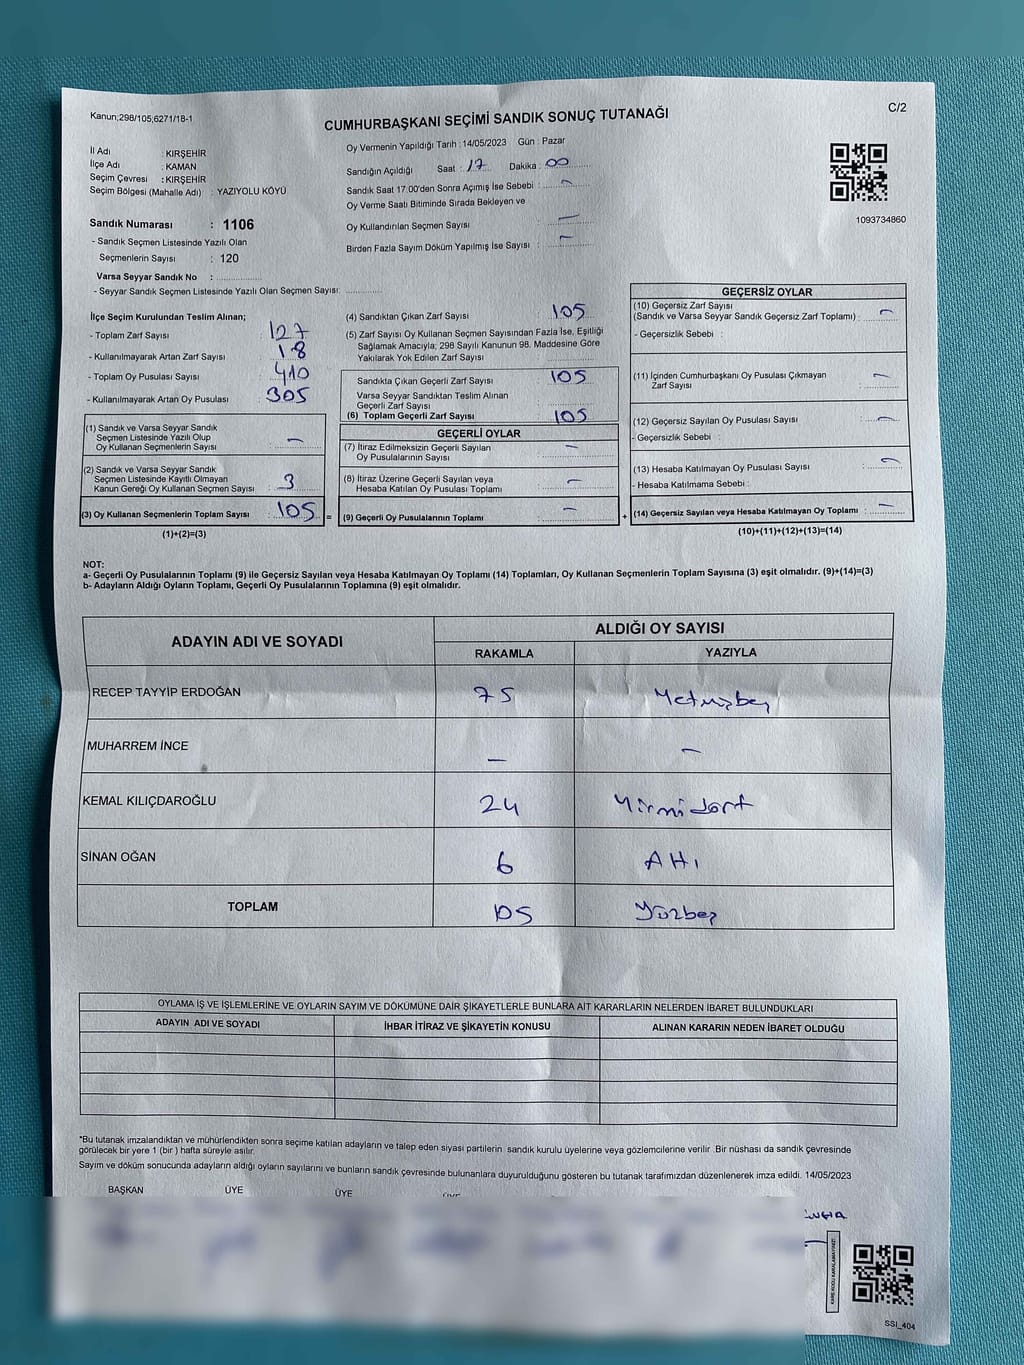 Kanun;298/105;6271/18-1
C/2
CUMHURBAŞKANI SEÇİMİ SANDIK SONUÇ TUTANAĞI
İl Adı : KIRŞEHİR
İlçe Adı : KAMAN
Seçim Çevresi : KIRŞEHİR
Seçim Bölgesi (Mahalle Adı) : YAZIYOLU KÖYÜ
Sandık Numarası : 1106
- Sandık Seçmen Listesinde Yazılı Olan
Seçmenlerin Sayısı : 120
Varsa Seyyar Sandık No :
- Seyyar Sandık Seçmen Listesinde Yazılı Olan Seçmen Sayısı:
Oy Vermenin Yapıldığı Tarih : 14/05/2023 Gün : Pazar
Sandığın Açıldığı Saat : 17 Dakika : 00
Sandık Saat 17:00'den Sonra Açımış İse Sebebi : -
Oy Verme Saati Bitiminde Sırada Bekleyen ve
Oy Kullandırılan Seçmen Sayısı -
Birden Fazla Sayım Döküm Yapılmış İse Sayısı : -
1093734860
İlçe Seçim Kurulundan Teslim Alınan;
- Toplam Zarf Sayısı 127
- Kullanılmayarak Artan Zarf Sayısı 18
- Toplam Oy Pusulası Sayısı 410
- Kullanılmayarak Artan Oy Pusulası 305
(1) Sandık ve Varsa Seyyar Sandık
Seçmen Listesinde Yazılı Olup
Oy Kullanan Seçmenlerin Sayısı : -
(2) Sandık ve Varsa Seyyar Sandık
Seçmen Listesinde Kayıtlı Olmayan
Kanun Gereği Oy Kullanan Seçmen Sayısı : 3
(3) Oy Kullanan Seçmenlerin Toplam Sayısı : 105 =
(1)+(2)=(3)
(4) Sandıktan Çıkan Zarf Sayısı 105
(5) Zarf Sayısı Oy Kullanan Seçmen Sayısından Fazla İse, Eşitliği
Sağlamak Amacıyla; 298 Sayılı Kanunun 98. Maddesine Göre
Yakılarak Yok Edilen Zarf Sayısı :
Sandıkta Çıkan Geçerli Zarf Sayısı 105
Varsa Seyyar Sandıktan Teslim Alınan
Geçerli Zarf Sayısı
(6) Toplam Geçerli Zarf Sayısı 105
GEÇERLİ OYLAR
(7) İtiraz Edilmeksizin Geçerli Sayılan
Oy Pusulalarının Sayısı : -
(8) İtiraz Üzerine Geçerli Sayılan veya
Hesaba Katılan Oy Pusulası Toplamı : -
(9) Geçerli Oy Pusulalarının Toplamı : - +
GEÇERSİZ OYLAR
(10) Geçersiz Zarf Sayısı
(Sandık ve Varsa Seyyar Sandık Geçersiz Zarf Toplamı) : -
- Geçersizlik Sebebi :
(11) İçinden Cumhurbaşkanı Oy Pusulası Çıkmayan
Zarf Sayısı : -
(12) Geçersiz Sayılan Oy Pusulası Sayısı : -
- Geçersizlik Sebebi :
(13) Hesaba Katılmayan Oy Pusulası Sayısı : -
- Hesaba Katılmama Sebebi :
(14) Geçersiz Sayılan veya Hesaba Katılmayan Oy Toplamı : -
(10)+(11)+(12)+(13)=(14)
NOT:
a- Geçerli Oy Pusulalarının Toplamı (9) ile Geçersiz Sayılan veya Hesaba Katılmayan Oy Toplamı (14) Toplamları, Oy Kullanan Seçmenlerin Toplam Sayısına (3) eşit olmalıdır. (9)+(14)=(3)
b- Adayların Aldığı Oyların Toplamı, Geçerli Oy Pusulalarının Toplamına (9) eşit olmalıdır.
ADAYIN ADI VE SOYADI ALDIĞI OY SAYISI
RAKAMLA YAZIYLA
RECEP TAYYİP ERDOĞAN 75 Yetmişbeş
MUHARREM İNCE - -
KEMAL KILIÇDAROĞLU 24 Yirmidört
SİNAN OĞAN 6 AHı
TOPLAM 105 Yüzbeş
OYLAMA İŞ VE İŞLEMLERİNE VE OYLARIN SAYIM VE DÖKÜMÜNE DAİR ŞİKAYETLERLE BUNLARA AİT KARARLARIN NELERDEN İBARET BULUNDUKLARI
ADAYIN ADI VE SOYADI İHBAR İTİRAZ VE ŞİKAYETİN KONUSU ALINAN KARARIN NEDEN İBARET OLDUĞU
*Bu tutanak imzalandıktan ve mühürlendikten sonra seçime katılan adayların ve talep eden siyasi partilerin sandık kurulu üyelerine veya gözlemcilerine verilir. Bir nüshası da sandık çevresinde
görülecek bir yere 1 (bir ) hafta süreyle asılır.
Sayım ve döküm sonucunda adayların aldığı oyların sayılarını ve bunların sandık çevresinde bulunanlara duyurulduğunu gösteren bu tutanak tarafımızdan düzenlenerek imza edildi. 14/05/2023
BAŞKAN ÜYE ÜYE
SSİ_404